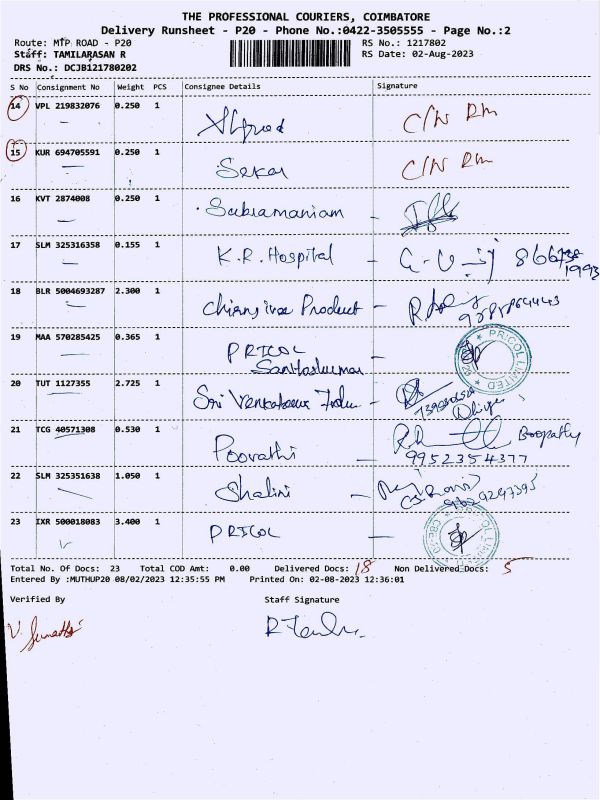 THE PROFESSIONAL COURIERS, COIMBATORE
Delivery Runsheet - P20 - Phone No.:0422-3505555 - Page No.:2
Route: MTP ROAD - P20 RS No.: 1217802
Staff: TAMILARASAN R RS Date: 02-Aug-2023
DRS No.: DCJB121780202
S No Consignment No Weight PCS Consignee Details Signature
14 VPL 219832076 0.250 1 C/N RM
15 KUR 694705591 0.250 1 Sekar C/N RM
16 KVT 2874008 0.250 1 Subramaniam -
17 SLM 325316358 0.155 1 K.R. Hospital -
18 BLR 5004693287 2.300 1 Product -
19 MAA 570285425 0.365 1 PRICOL - PRICOL LIMITED
Santhoskumar
20 TUT 1127355 2.725 1 Sri -
21 TCG 40571308 0.530 1 Poovathi Boopathy
9952354377
22 SLM 325351638 1.050 1 Shalini -
23 IXR 500018083 3.400 1 PRICOL -
Total No. Of Docs: 23 Total COD Amt: 0.00 Delivered Docs: 18 Non Delivered Docs: 5
Entered By :MUTHUP20 08/02/2023 12:35:55 PM Printed On: 02-08-2023 12:36:01
Verified By Staff Signature